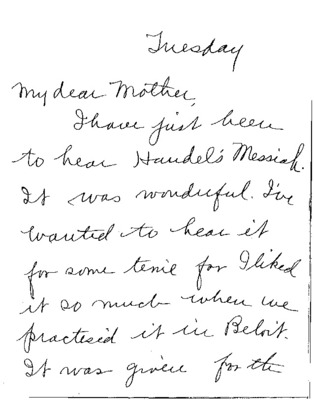 Tuesday
My dear Mother,
I have just been
to hear Handel's Messiah.
It was wonderful. I've
wanted to hear it
for some time for I liked
it so much when we
practised it in Beloit.
It was given for the